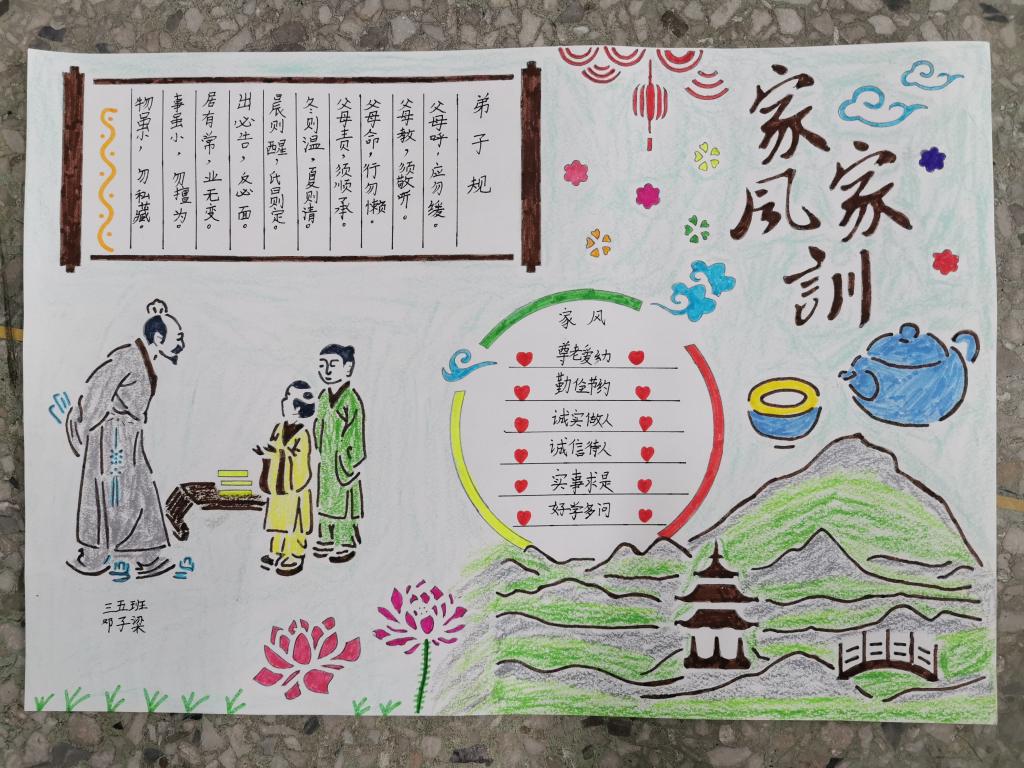 家风
家训
弟子规
父母呼，应勿缓。
父母教，须敬听。
父母命，行勿懒。
父母责，须顺承。
冬则温，夏则清。
晨则醒，昏则定。
出必告，反必面。
居有常，业无变。
事虽小，勿擅为。
物虽小，勿私藏。
家风
尊老爱幼
勤俭节约
诚实做人
诚信待人
实事求是
好学多问
三五班
邓子梁